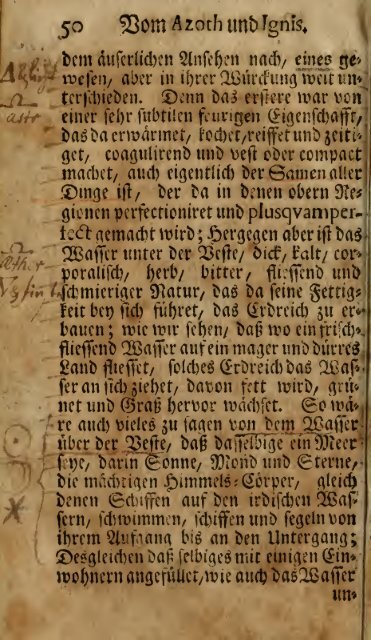 50 Vom Azoth und Ignis.
dem äuserlichen Ansehen nach, eines ge-
wesen, aber in ihrer Würckung weit un-
terschieden. Denn das erstere war von
einer sehr subtilen feurigen Eigenschafft,
das da erwärmet, kochet, reiffet und zeiti-
get, coagulirend und vest oder compact
machet, auch eigentlich der Samen aller
Dinge ist, der da in denen obern Re-
gionen perfectioniret und plusqvamper-
fect gemacht wird; Hergegen aber ist das
Wasser unter der Veste, dick, kalt, cor-
poralisch, herb, bitter, fliessend und
schmieriger Natur, das da seine Fettig-
keit bey sich führet, das Erdreich zu er-
bauen; wie wir sehen, daß wo ein frisch-
fliessend Wasser auf ein mager und dürres
Land fliesset, solches Erdreich das Was-
ser an sich ziehet, davon fett wird, grü-
net und Graß hervor wächset. So wä-
re auch vieles zu sagen von dem Wasser
über der Veste, daß dasselbige ein Meer
seye, darin Sonne, Mond und Sterne,
die mächtigen Himmels-Cörper, gleich
denen Schiffen auf den irdischen Was-
sern, schwimmen, schiffen und segeln von
ihrem Aufgang bis an den Untergang;
Desgleichen daß selbiges mit einigen Ein-
wohnern angefüllet, wie auch das Wasser
un-